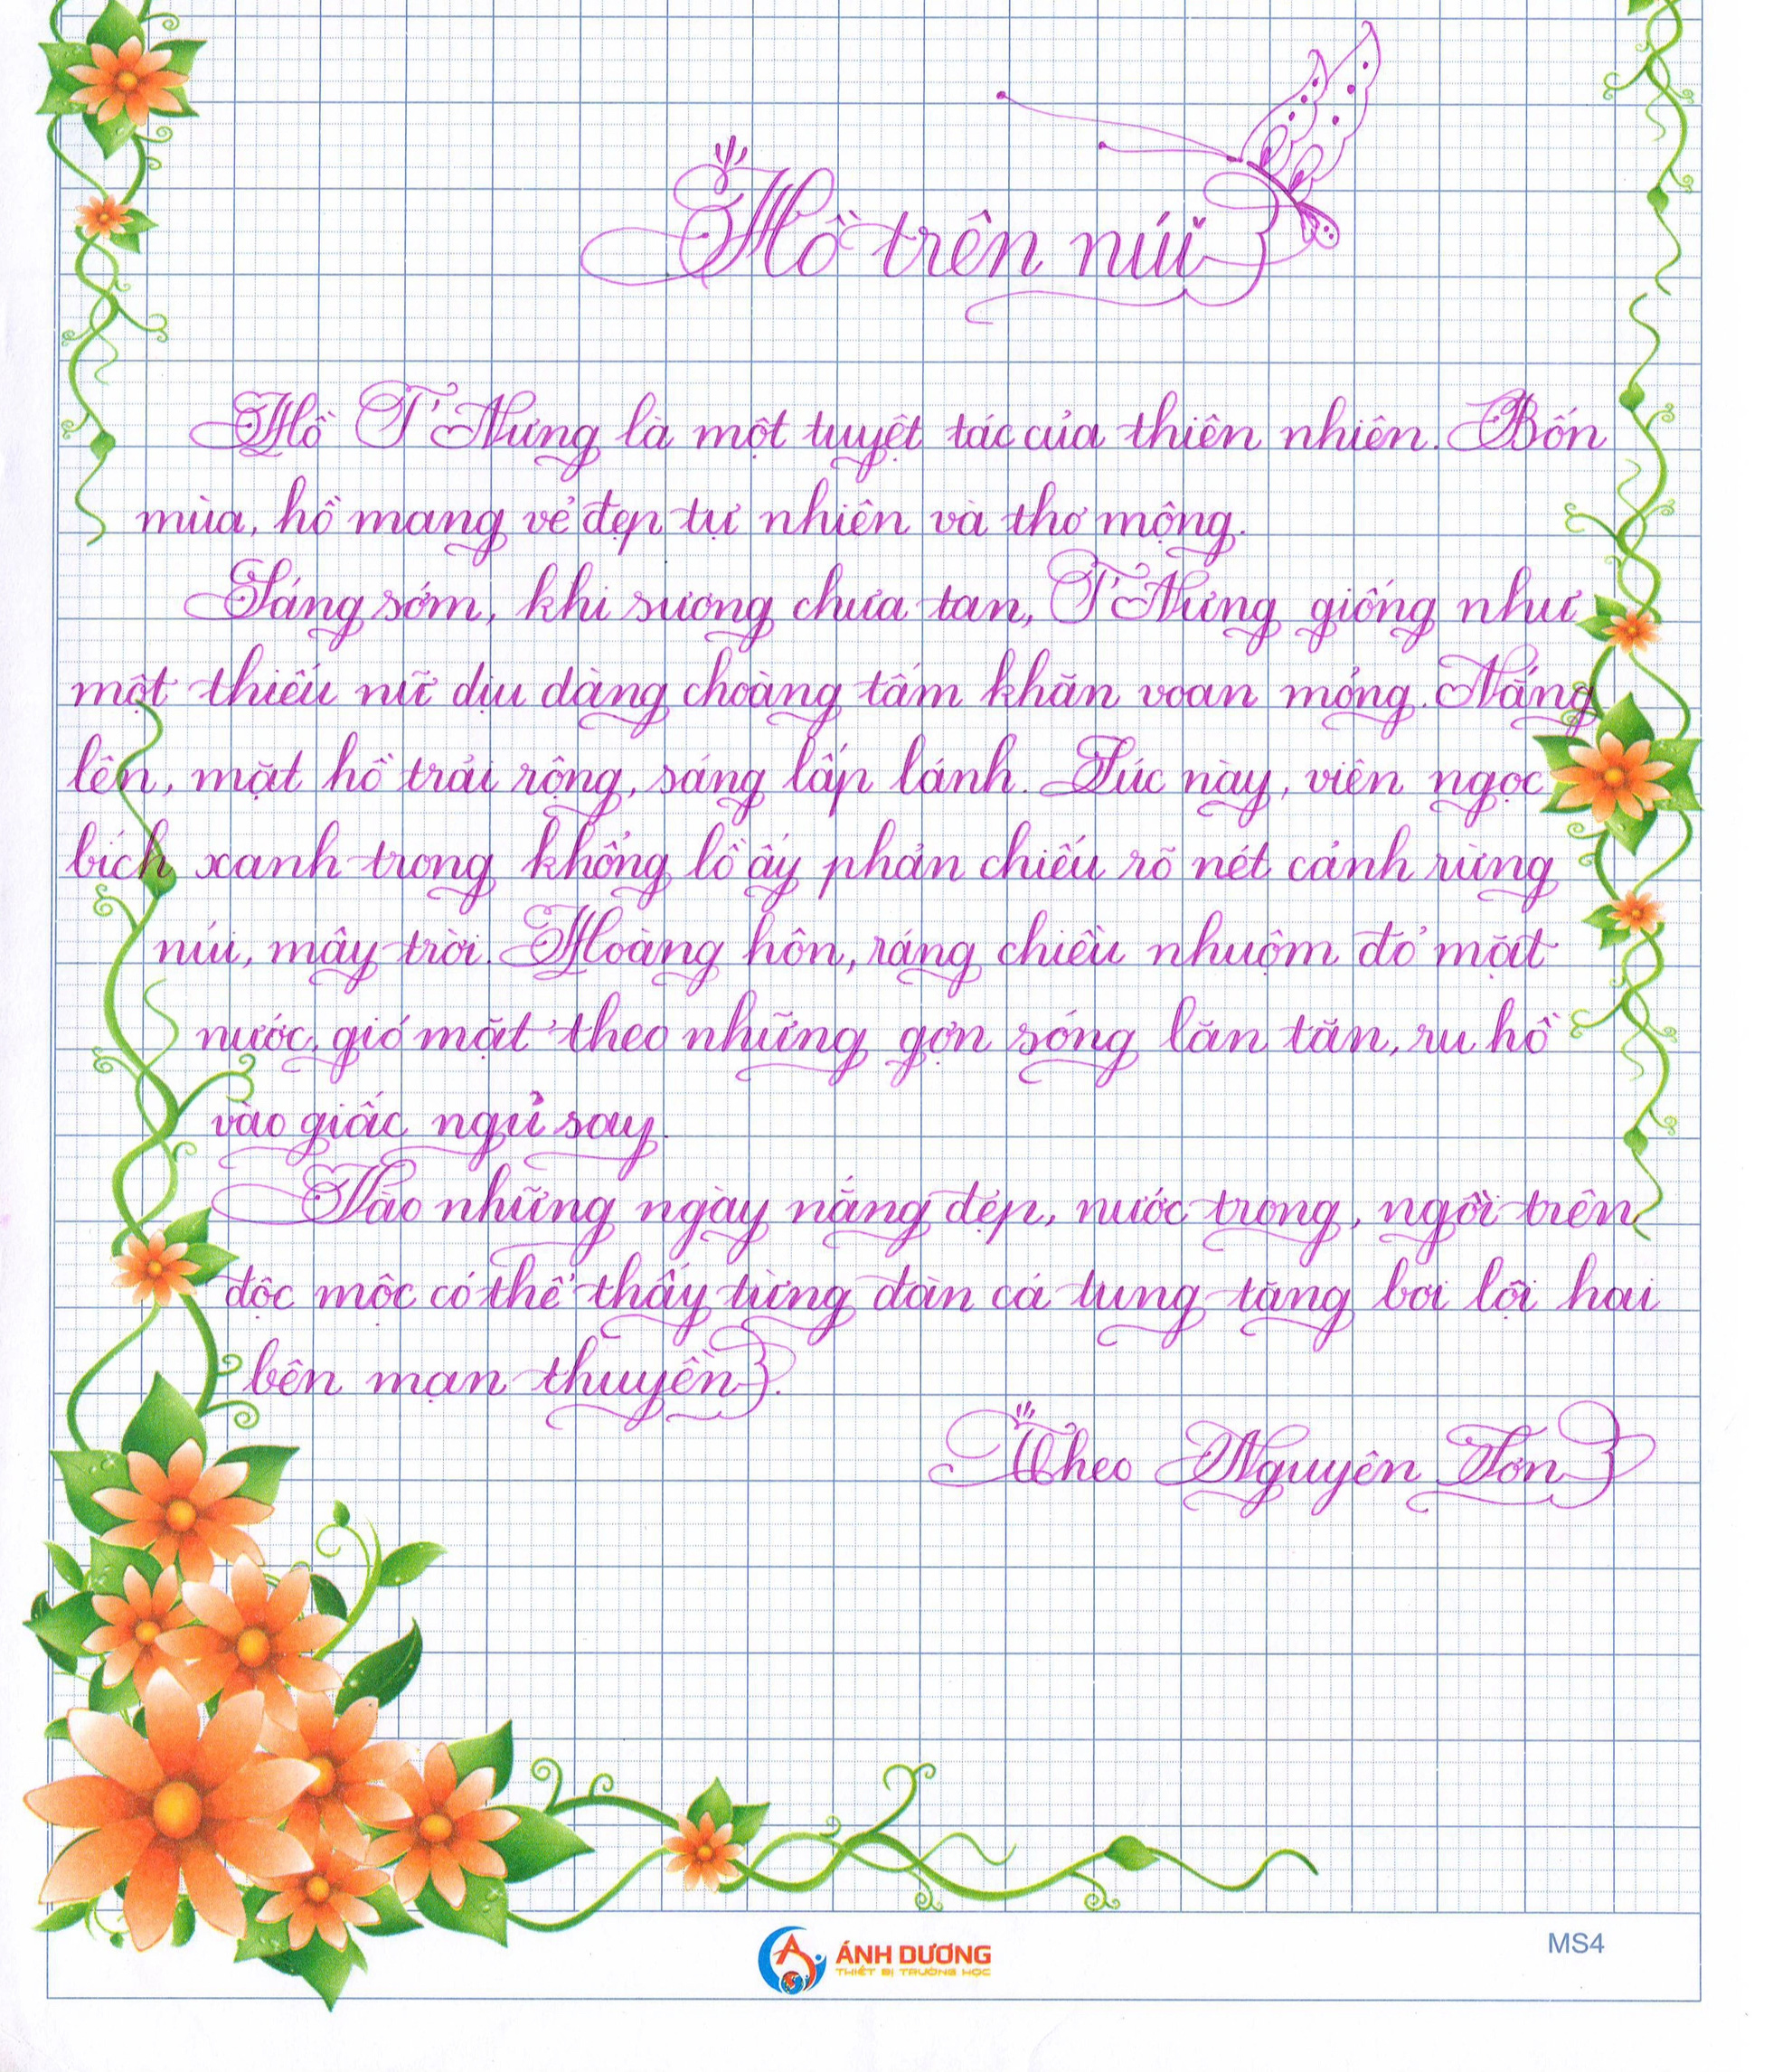 Hồ trên núi
Hồ T'Nưng là một tuyệt tác của thiên nhiên. Bốn
mùa, hồ mang vẻ đẹp tự nhiên và thơ mộng.
Sáng sớm, khi sương chưa tan, T'Nưng giống như
một thiếu nữ dịu dàng choàng tấm khăn voan mỏng. Nắng
lên, mặt hồ trải rộng, sáng lấp lánh. Lúc này, viên ngọc
bích xanh trong khổng lồ ấy phản chiếu rõ nét cảnh rừng
núi, mây trời. Hoàng hôn, ráng chiều nhuộm đỏ mặt
nước, gió mặt theo những gợn sóng lăn tăn, ru hồ
vào giấc ngủ say.
Vào những ngày nắng đẹp, nước trong, ngồi trên
độc mộc có thể thấy từng đàn cá tung tăng bơi lội hai
bên mạn thuyền.
Theo Nguyên Sơn
ÁNH DƯƠNG
THIẾT BỊ TRƯỜNG HỌC
MS4